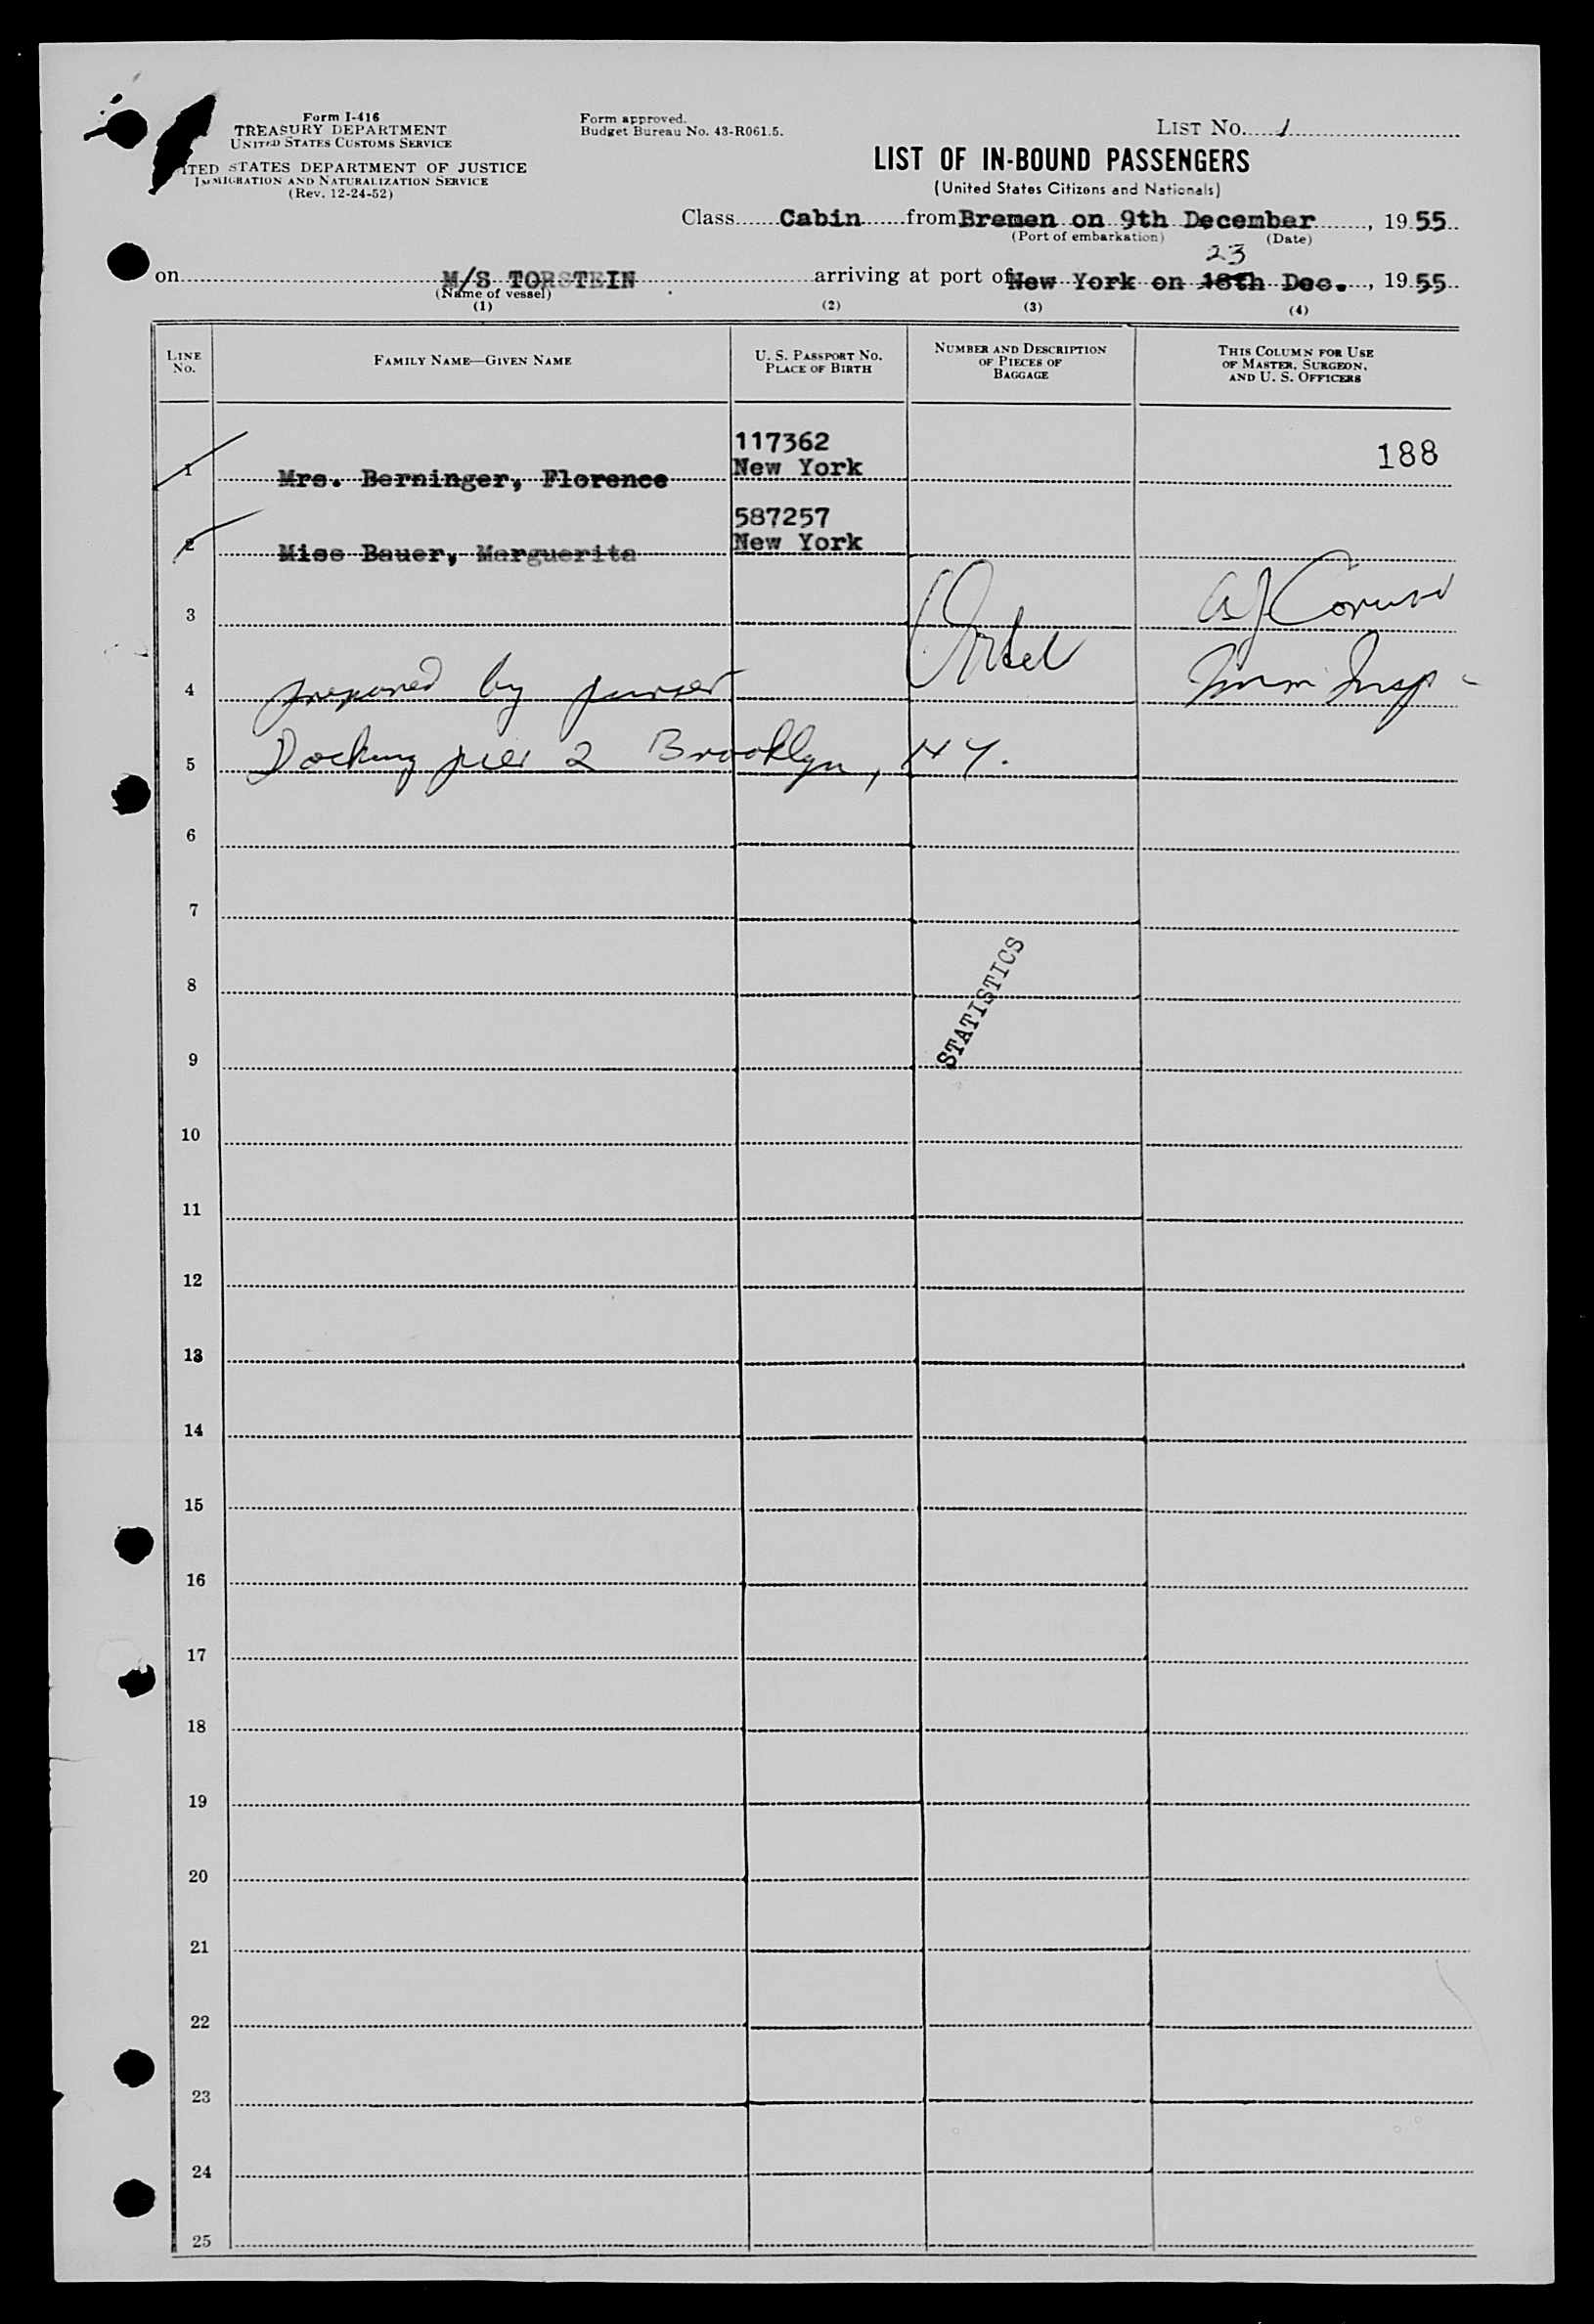 Form I-416
TREASURY DEPARTMENT
UNITED STATES CUSTOMS SERVICE
ITED STATES DEPARTMENT OF JUSTICE
IMMIGRATION AND NATURALIZATION SERVICE
(Rev. 12-24-52)
Form approved.
Budget Bureau No. 43-R061.5.
LIST NO. 1
LIST OF IN-BOUND PASSENGERS
(United States Citizens and Nationals)
Class Cabin from Bremen on 9th December, 1955
(Port of embarkation) (Date)
23
on M/S TORSTEIN arriving at port of New York on 18th Dec., 1955
(Name of vessel)
(1) (2) (3) (4)
LINE NO. FAMILY NAME—GIVEN NAME U. S. PASSPORT NO. PLACE OF BIRTH NUMBER AND DESCRIPTION OF PIECES OF BAGGAGE THIS COLUMN FOR USE OF MASTER, SURGEON, AND U. S. OFFICERS
117362
1 Mrs. Berninger, Florence New York 188
587257
2 Miss Bauer, Marguerita New York
3
4 prepared by purser Imm Insp
5 Docking pier 2 Brooklyn, NY.
6
7
8
STATISTICS
9
10
11
12
13
14
15
16
17
18
19
20
21
22
23
24
25